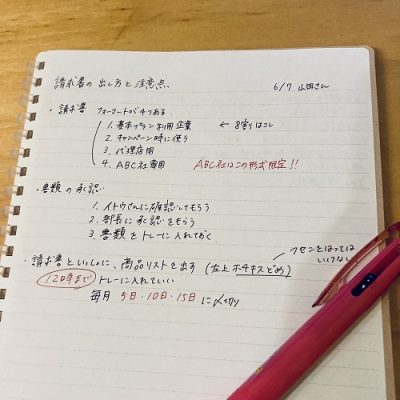 請求書の出し方と注意点 6/7 山田さん
・請求書 フォーマットが4つある
1. 基本プラン利用企業 ← 8割はコレ
2. キャンペーン時に使う
3. 代理店用
4. ABC社専用 ABC社はこの形式指定!!
・書類の承認
1. イトウさんに確認してもらう
2. 部長に承認をもらう
3. 書類をトレーに入れておく
フセンをはっては
いけない
・請求書といっしょに、商品リストを出す (左上ホチキスどめ)
12時まで トレーに入れていい
毎月 5日・10日・15日 に〆切り